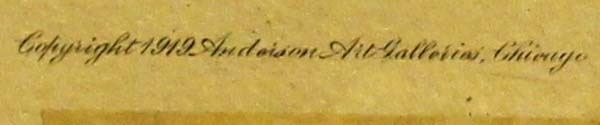 Copyright 1919 Anderson Art Galleries, Chicago